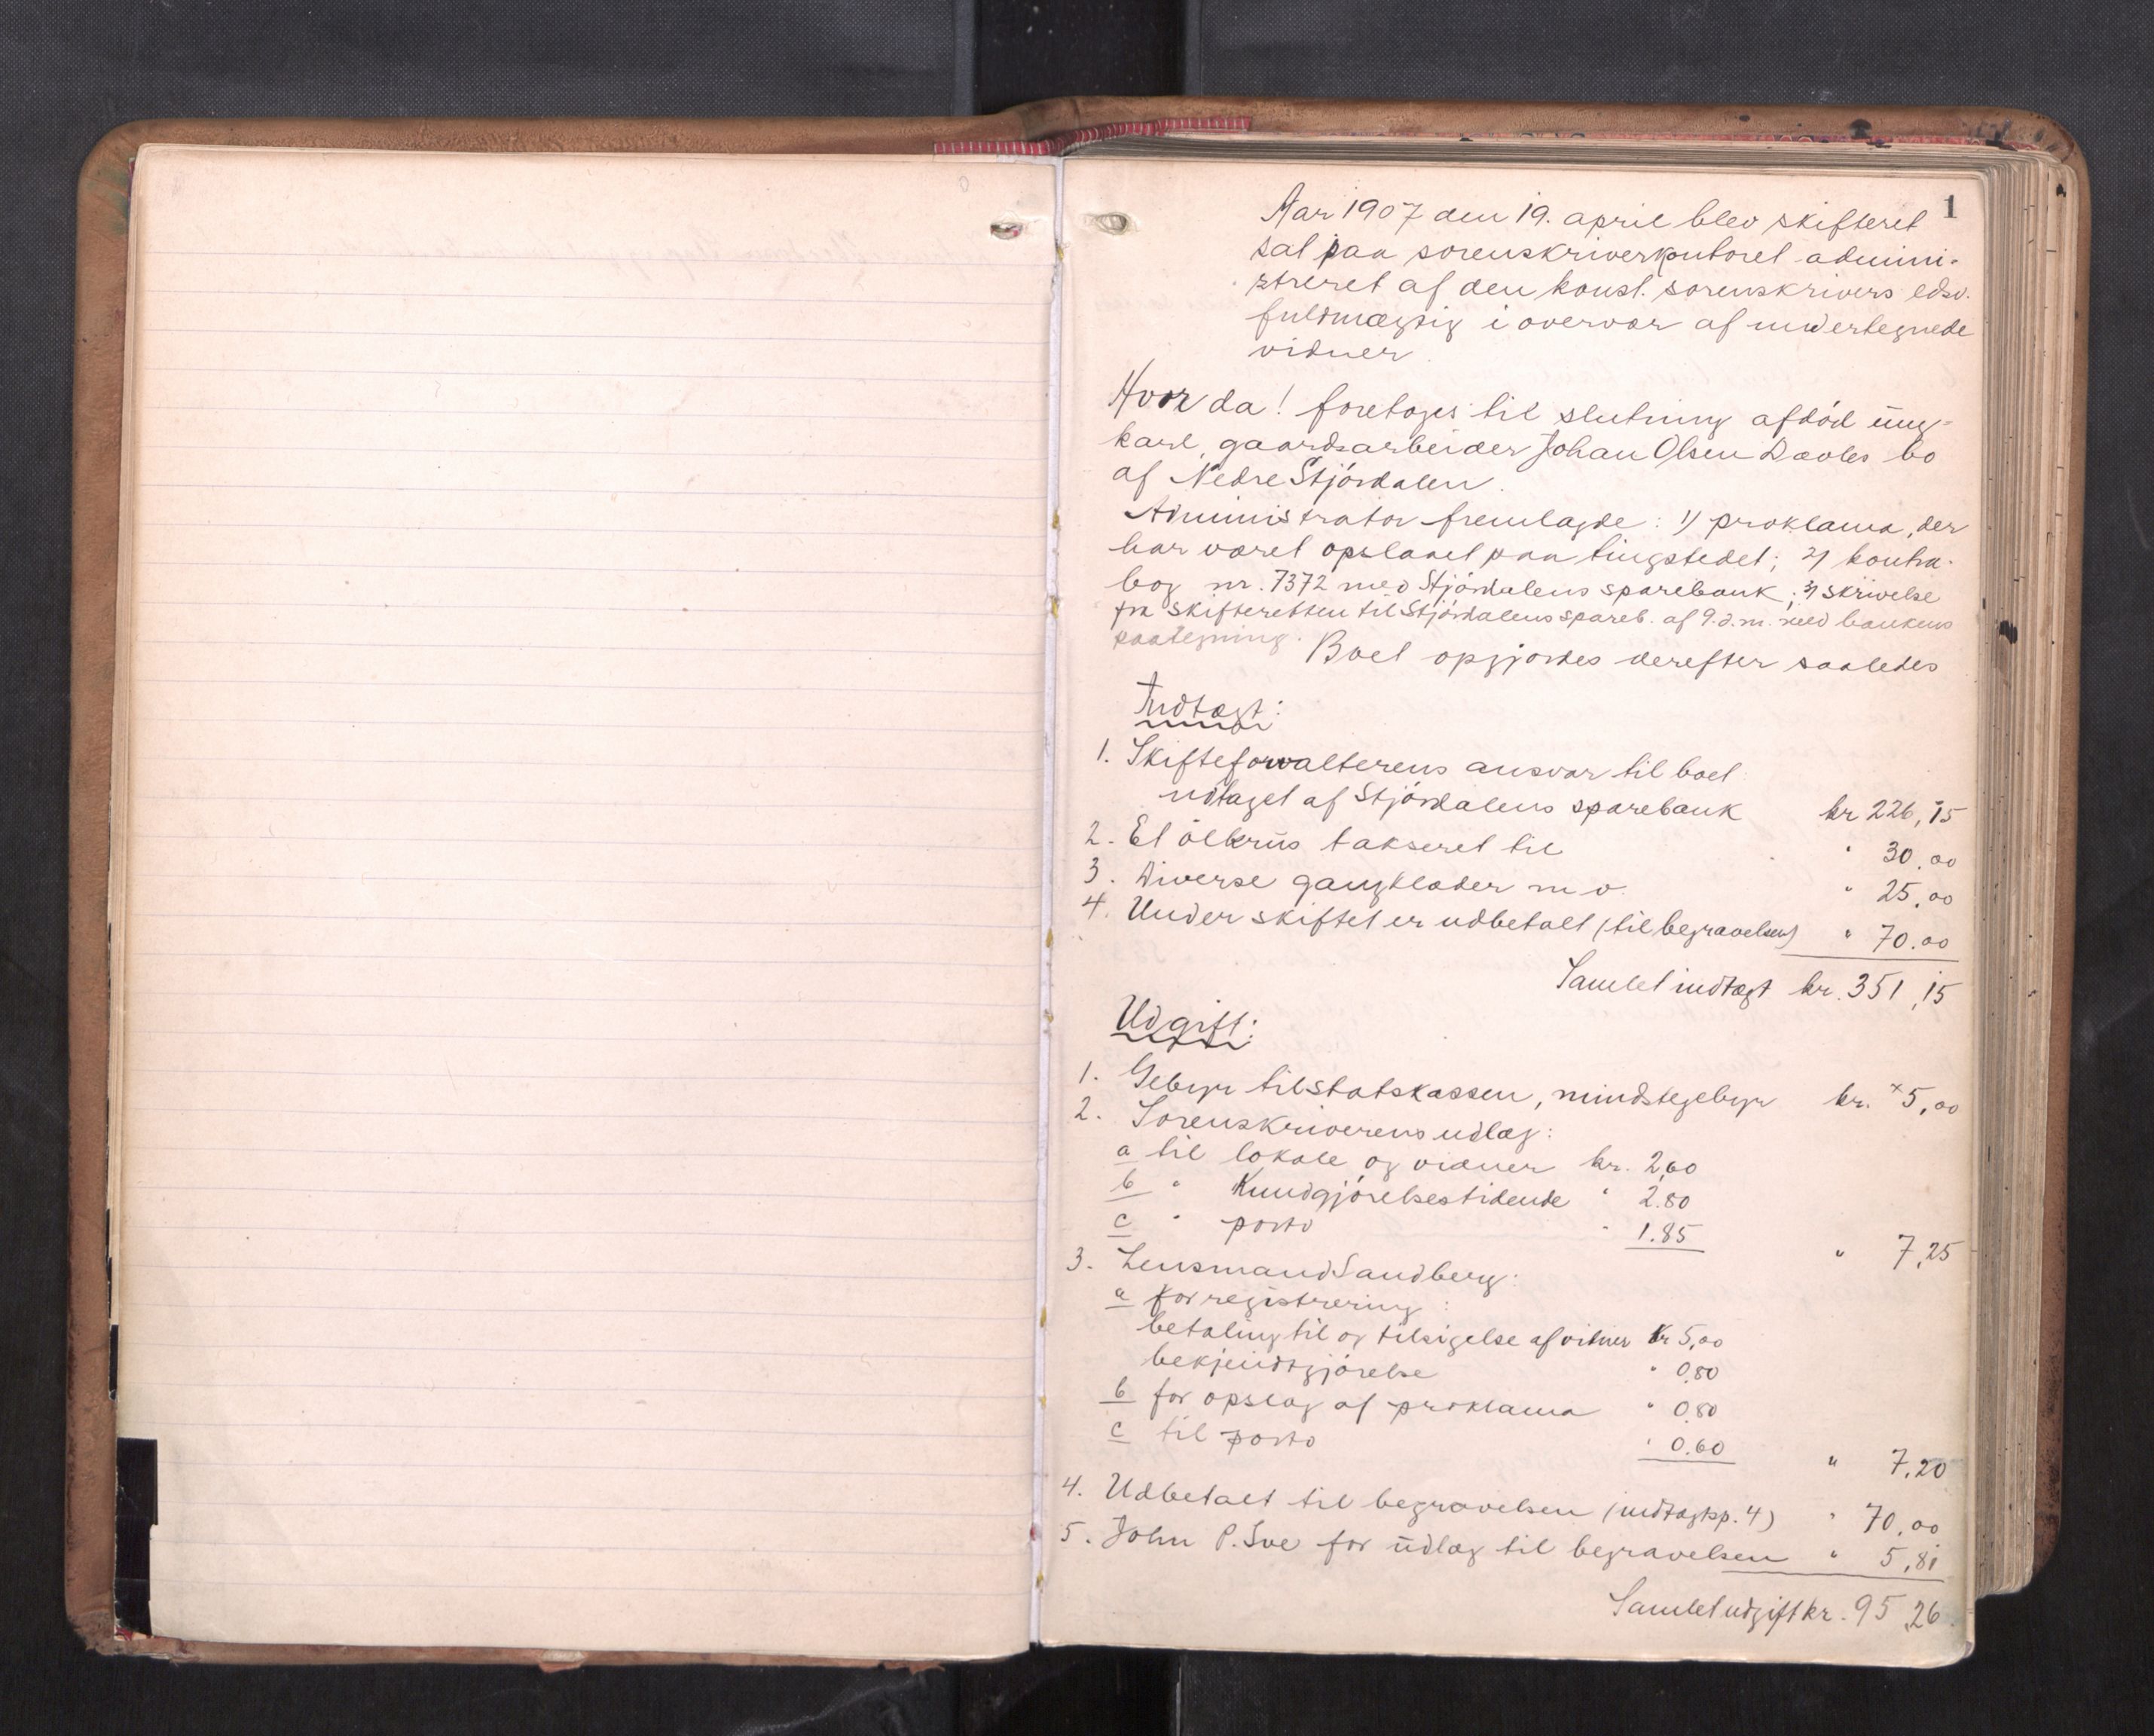 1
Aar 1907 den 19. april blev skifteret
sat paa sorenskriverkontoret admini-
streret af den konst. sorenskrivers edsv.
fuldmægtig i overvær af undertegnede
vidner
Hvor da! foretoges til slutning afdöd ung-
karl, gaardsarbeider Johan Olsen Davles bo
af Nedre Stjördalen.
Administrator fremlagde: 1) proklama, der
har været opslaaet paa tingstedet; 2) kontra-
bog nr. 7372 med Stjördalens sparebank; 3) skrivelse
fra skifteretten til Stjördalens spareb. af 9. d.m. med bankens
paategning. Boet opgjordes derefter saaledes
Indtægt:
1. Skifteforvalterens ansvar til boet
udtaget af Stjördalens sparebank kr 226,15
2. Et ölkrus takseret til " 30.00
3. Diverse gangklæder m v. " 25,00
4. Under skiftet er udbetalt (til begravelsen) " 70.00
Samlet indtægt kr. 351,15
Udgift:
1. Gebyr til statskassen, mindstegebyr kr. × 5,00
2. Sorenskriverens udlæg:
a til lokale og vidner kr. 2,60
b " Kundgjörelsestidende " 2.80
c " porto " 1.85 " 7,25
3. Lensmand Sandberg:
a for registrering:
betaling til og tilsigelse af vidner kr 5,00
bekjendtgjörelse " 0,80
b for opslag af proklama " 0,80
c til porto " 0.60 " 7,20
4. Udbetalt til begravelsen (indtægtsp. 4) " 70,00
5. John P. Sve for udlæg til begravelsen " 5,81
Samlet udgift kr. 95,26